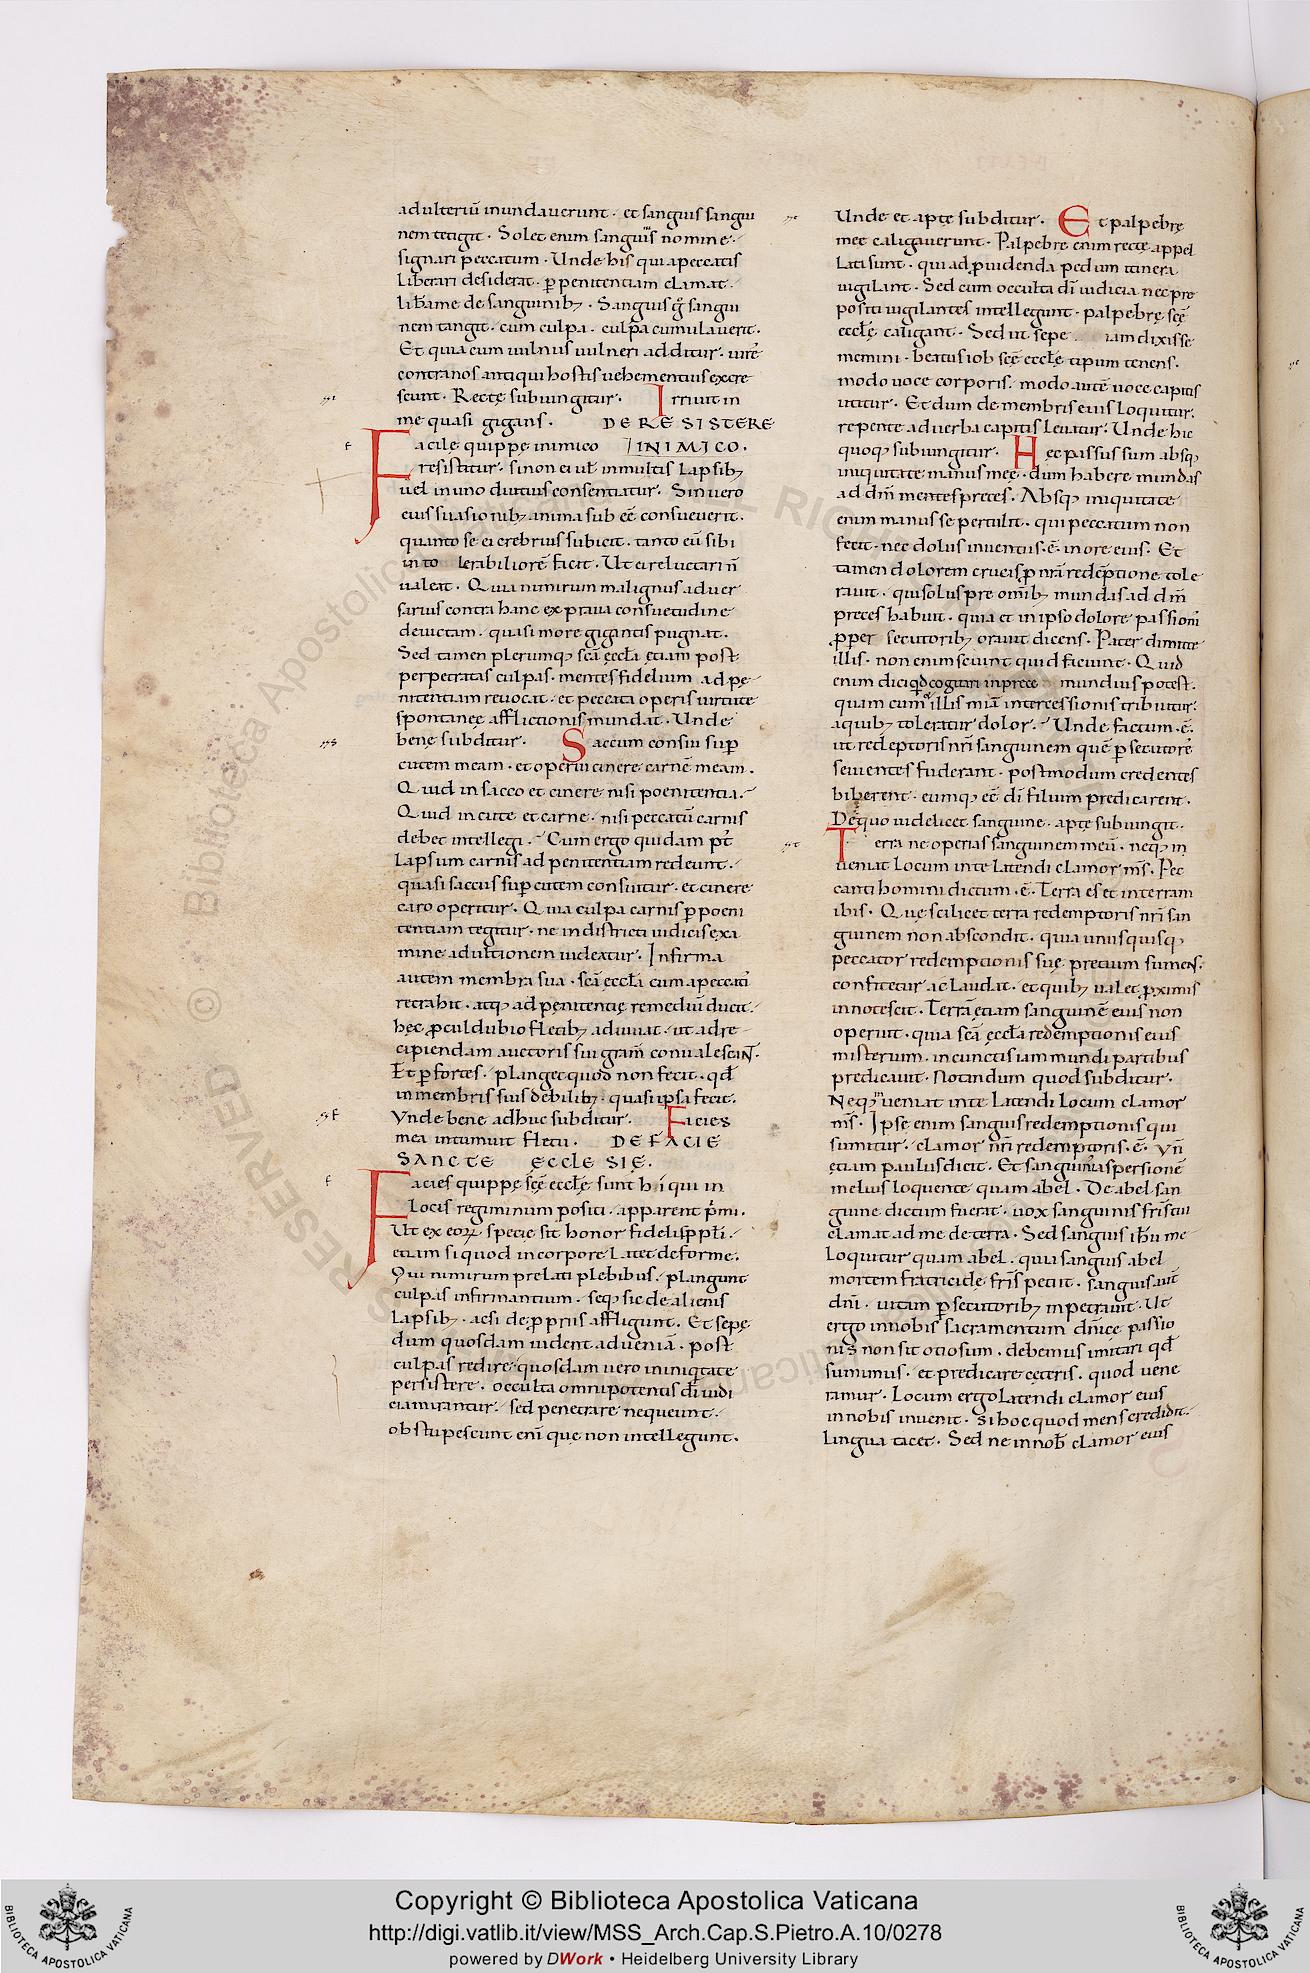 adulteriū inundauerunt · et sanguis sangui
nem tetigit · Solet enim sanguis nomine
signari peccatum · Unde his qui a peccatis
liberari desiderat · ꝑ penitentiam clamat ·
liƀa me de sanguinibꝫ · Sanguis g̊ sangui
nem tangit · cum culpa · culpa cumulauerit ·
Et quia cum uulnus uulneri additur · iure
contra nos antiqui hostis uehementius excre
scunt · Recte subiungitur · Irriuit in
me quasi gigans · DE RESISTERE
Facile quippe inimico INIMICO ·
resistitur · si non ei uł in multis lapsibꝫ
uel in uno diutius consentiatur · Sin uero
eius suasionibꝫ anima sub eē consueuerit ·
quanto se ei crebrius subicit · tanto eū sibi
in to lerabiliorē facit · Ut ei reluctari n̄
ualeat · Quia nimirum malignus aduer
sarius contra hanc ex praua consuetudine
deuictam · quasi more gigantis pugnat ·
Sed tamen plerumqꝫ scā ęccła etiam post
perpetratas culpas · mentes fidelium ad pę
nitentiam reuocat · et peccata operis uirtute
spontanee afflictionis mundat · Unde
bene subditur · Saccum consui suꝑ
cutem meam · et operui cinere carnē meam ·
Quid in sacco et cinere nisi poenitentia ·
Quid in cute et carne · nisi peccatū carnis
debet intellegi · Cum ergo quidam p̄t
lapsum carnis ad penitentiam redeunt ·
quasi saccus suꝑ cutem consuitur · et cinere
caro operitur · Quia culpa carnis ꝑ poeni
tentiam tegitur · ne in districti iudicis exa
mine ad ultionem uideatur · Infirma
autem membra sua · scā ęccła cum a peccatī
retrahit · atqꝫ ad penitentię remediū ducit ·
hęc ꝓculdubio fletibꝫ adiuuat · ut ad re
cipiendam auctoris sui gram̄ conualescaNT ·
Et ꝑ fortes · planget quod non fecit · qđ
in membris suis debilibꝫ · quasi ipsa fecit ·
Vnde bene adhuc subditur · Facies
mea intumuit fletu · DE FACIE
SANCTE ECCLESIE ·
Facies quippę scē eccłę sunt hi qui in
locis regiminum positi · apparent pͥmi ·
Ut ex eoꝝ specie sit honor fidelis ppłi ·
etiam si quod in corpore latet deforme ·
Qui nimirum prelati plebibus · plangunt
culpas infirmantium · seqꝫ sic de alienis
lapsibꝫ · ac si de ꝓpriis affligunt · Et sepę
dum quosdam uident ad ueniā · post
culpas redire · quosdam uero in iniqͥtate
persistere · occulta omnipotentis di iudi
cia mirantur · sed penetrare nequeunt ·
obstupescunt enī quę non intellegunt ·
Unde et apte subditur · Et palpebrę
męe caligauerunt · Palpebrę enim recte appel
lati sunt · qui ad ꝓuidenda pedum itinera
uigilant · Sed cum occulta dī iudicia nec pre
positi uigilantes intellegunt · palpebrę scē
eccłę caligant · Sed ut sepe iam dixisse
memini · beatus iob scē eccłę tipum tenens ·
modo uoce corporis · modo autē uoce capitis
utitur · Et dum de membris eius loquitur ·
repente ad uerba capitis leuatur · Unde hic
quoqꝫ subiungitur · Hęc passus sum absqꝫ
iniquitate manus męe · dum habere mundas
ad dm̄ mentes preces · Absqꝫ iniquitate
enim manus se pertulit · qui peccatum non
fecit · nec dolus inuentus · ē · in ore eius · Et
tamen dolorem crucis ꝓ nrā redēptione tole
rauit · qui solus pre omībꝫ mundas ad dm̄
preces habuit · quia et in ipso dolore passionī
ꝓ per secutoribꝫ orauit dicens · Pater dimitte
illis · non enim sciunt quid faciunt · Quid
enim dici qͥd cogitari in prece mundius potest ·
quam cum et illis miā intercessionis tribuitur ·
a quibꝫ toleratur dolor · Unde factum · ē ·
ut redēptoris nrī sanguinem quē ꝑsecutorēs
seuientes fuderant · postmodum credentes
biberent · eumqꝫ eē dī filium predicarent ·
De quo uidelicet sanguine · apte subiungit ·
Terra ne operias sanguinem meū · neqꝫ in
ueniat locum in te latendi clamor ms̄ · Pec
canti homini dictum · ē · Terra es et in terram
ibis · Quę scilicet terra redemptoris nrī san
guinem non abscondit · quia unusquisqꝫ
peccator redemptionis suę precium sumeN̄s ·
confitetur ac laudat · et quibꝫ ualet ꝓximis
innotescit · Terra etiam sanguinē eius non
operuit · quia scā ęccła redemptionis eius
misterium · in cunctis iam mundi partibus
predicauit · Notandum quod subditur ·
Neqꝫ inueniat in te latendi locum clamor
ms̄ · Ipse enim sanguis redemptionis qui
sumitur · clamor nrī redemptoris · ē · Vn̄
etiam paulus dicit · Et sanguinis aspersionē
melius loquente quam abel · De abel san
guine dictum fuerat · uox sanguinis fris tui
clamat ad me de terra · Sed sanguis ihū me
loquitur quam abel · quia sanguis abel
mortem fratricide fris petiit · sanguis aūt
dnī · uitam ꝑsecutoribꝫ inpetrauit · Ut
ergo in nobis sacramentum dn̄ice passio
nis non sit otiosum · debemus imitari qđ
sumimus · et predicare ceteris · quod uene
ramur · Locum ergo latendi clamor eius
in nobis inuenit · si hoc quod mens credidit ·
lingua tacet · Sed ne in noƀ clamor eius
Copyright © Biblioteca Apostolica Vaticana
http://digi.vatlib.it/view/MSS_Arch.Cap.S.Pietro.A.10/0278
powered by DWork • Heidelberg University Library
BIBLIOTECA APOSTOLICA VATICANA
BIBLIOTECA APOSTOLICA VATICANA